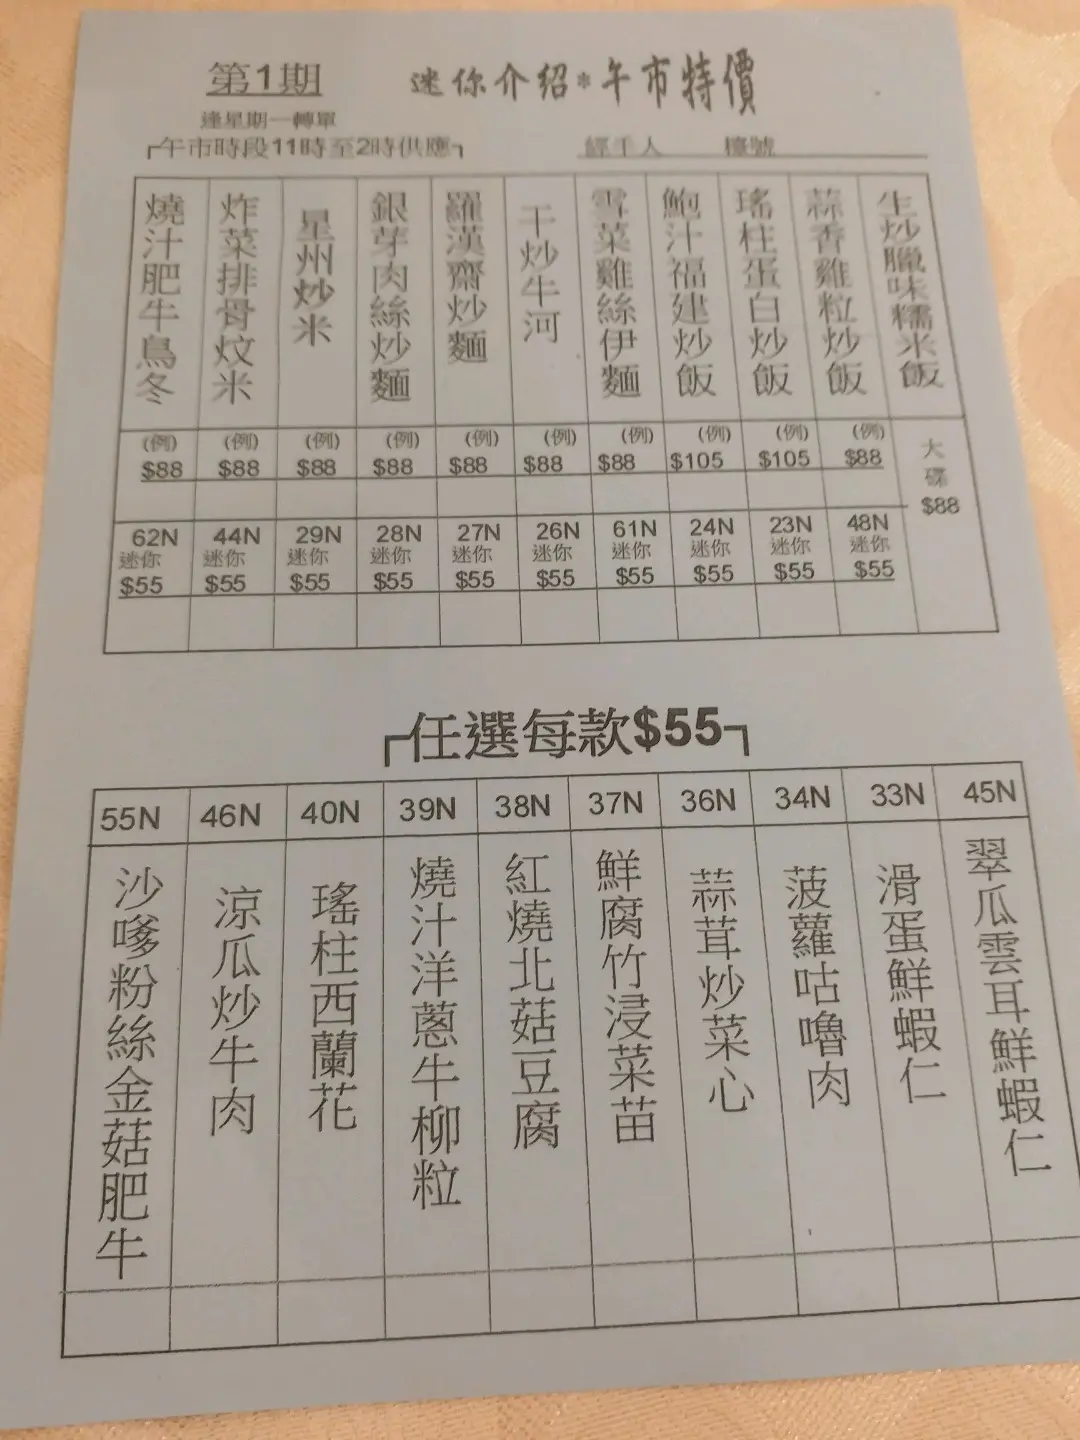 第1期
迷你介紹*午市特價
逢星期一轉單
「午市時段11時至2時供應」
經手人 檯號
生炒臘味糯米飯
蒜香雞粒炒飯
瑤柱蛋白炒飯
鮑汁福建炒飯
雪菜雞絲伊麵
干炒牛河
羅漢齋炒麵
銀芽肉絲炒麵
星州炒米
炸菜排骨炆米
燒汁肥牛烏冬
(例) (例) (例) (例) (例) (例) (例) (例) (例) (例)
$88 $88 $88 $88 $88 $88 $88 $105 $105 $88
大碟
$88
62N 44N 29N 28N 27N 26N 61N 24N 23N 48N
迷你 迷你 迷你 迷你 迷你 迷你 迷你 迷你 迷你 迷你
$55 $55 $55 $55 $55 $55 $55 $55 $55 $55
「任選每款$55」
55N 46N 40N 39N 38N 37N 36N 34N 33N 45N
翠瓜雲耳鮮蝦仁
滑蛋鮮蝦仁
菠蘿咕嚕肉
蒜茸炒菜心
鮮腐竹浸菜苗
紅燒北菇豆腐
燒汁洋蔥牛柳粒
瑤柱西蘭花
涼瓜炒牛肉
沙嗲粉絲金菇肥牛